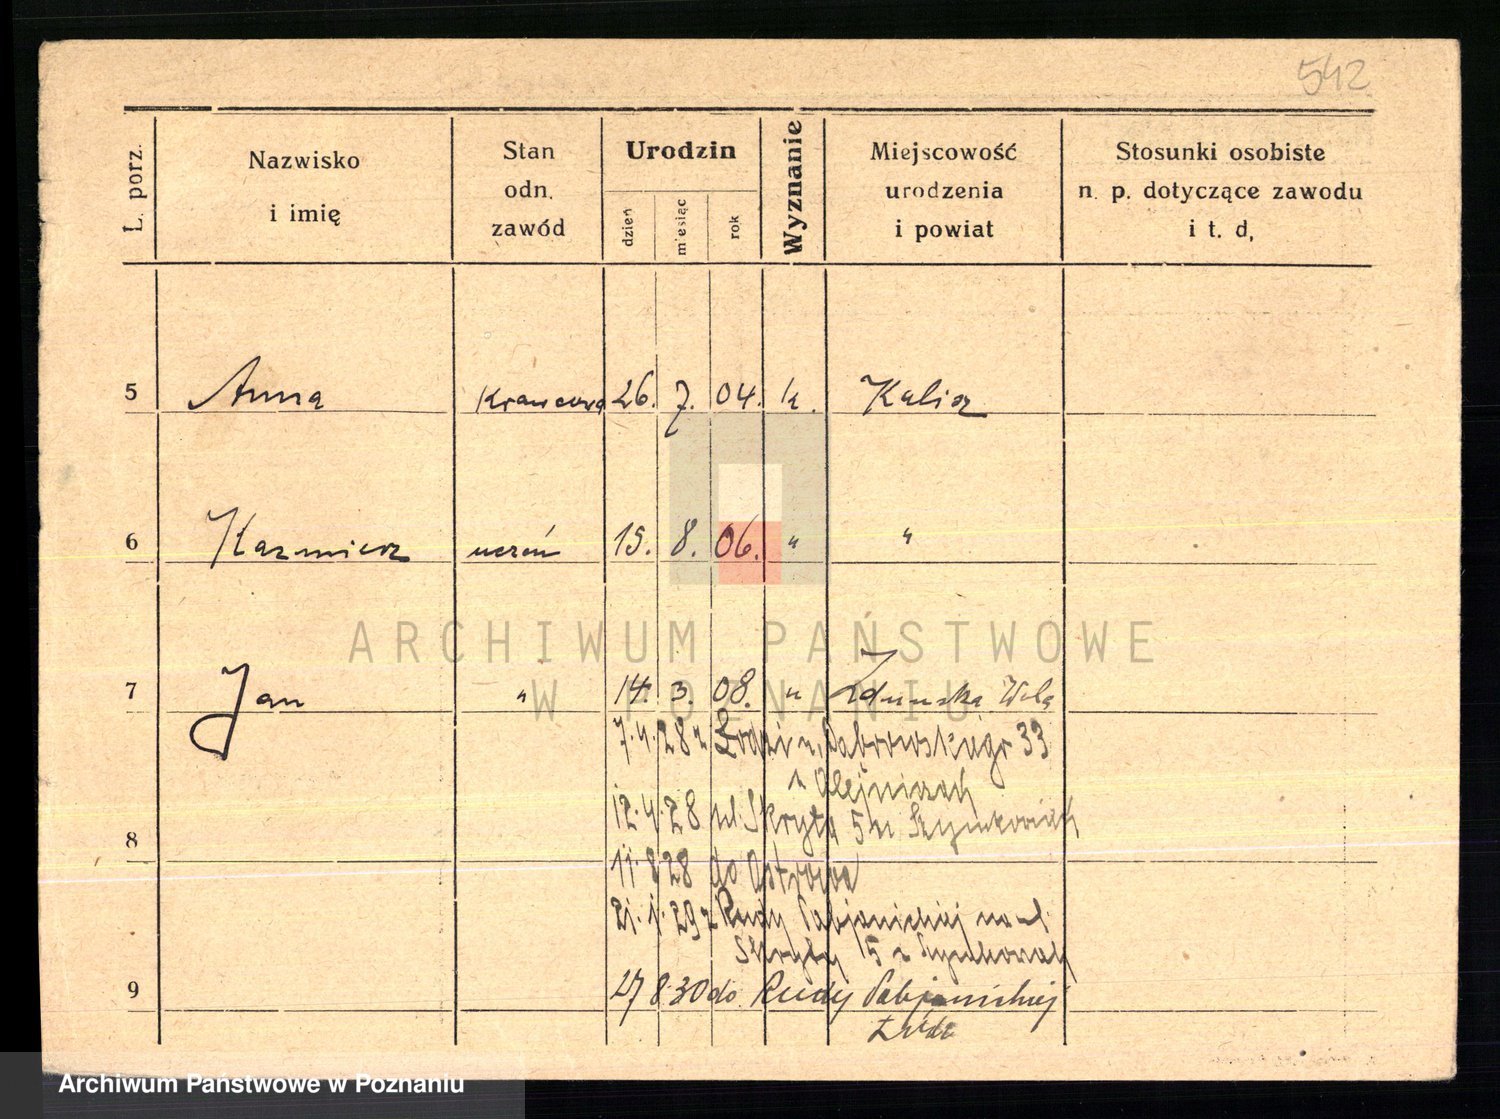 542
L. porz.
Nazwisko
i imię
Stan
odn.
zawód
Urodzin
dzień
miesiąc
rok
Wyznanie
Miejscowość
urodzenia
i powiat
Stosunki osobiste
n. p. dotyczące zawodu
i t. d,
5 Anna Krawcowa 26. 7. 04. k. Kalisz
6 Kazmierz uczeń 15. 8. 06. " "
7 Jan " 14. 3. 08. " Zduńska Wola
7.4.28 z Łodzi u, Dąbrowskiego 33
u Olejniczak
12.4.28 ul. Skryta 5 u Szymkowiak
8
11.8.28 do Ostrowa
21.1.29 z Rudy Pabjanickiej na ul.
Skrytą 15 u Szymkowiak
9 27 8.30 do Rudy Pabjanickiej
Łódź
ARCHIWUM PAŃSTWOWE
W POZNANIU
Archiwum Państwowe w Poznaniu